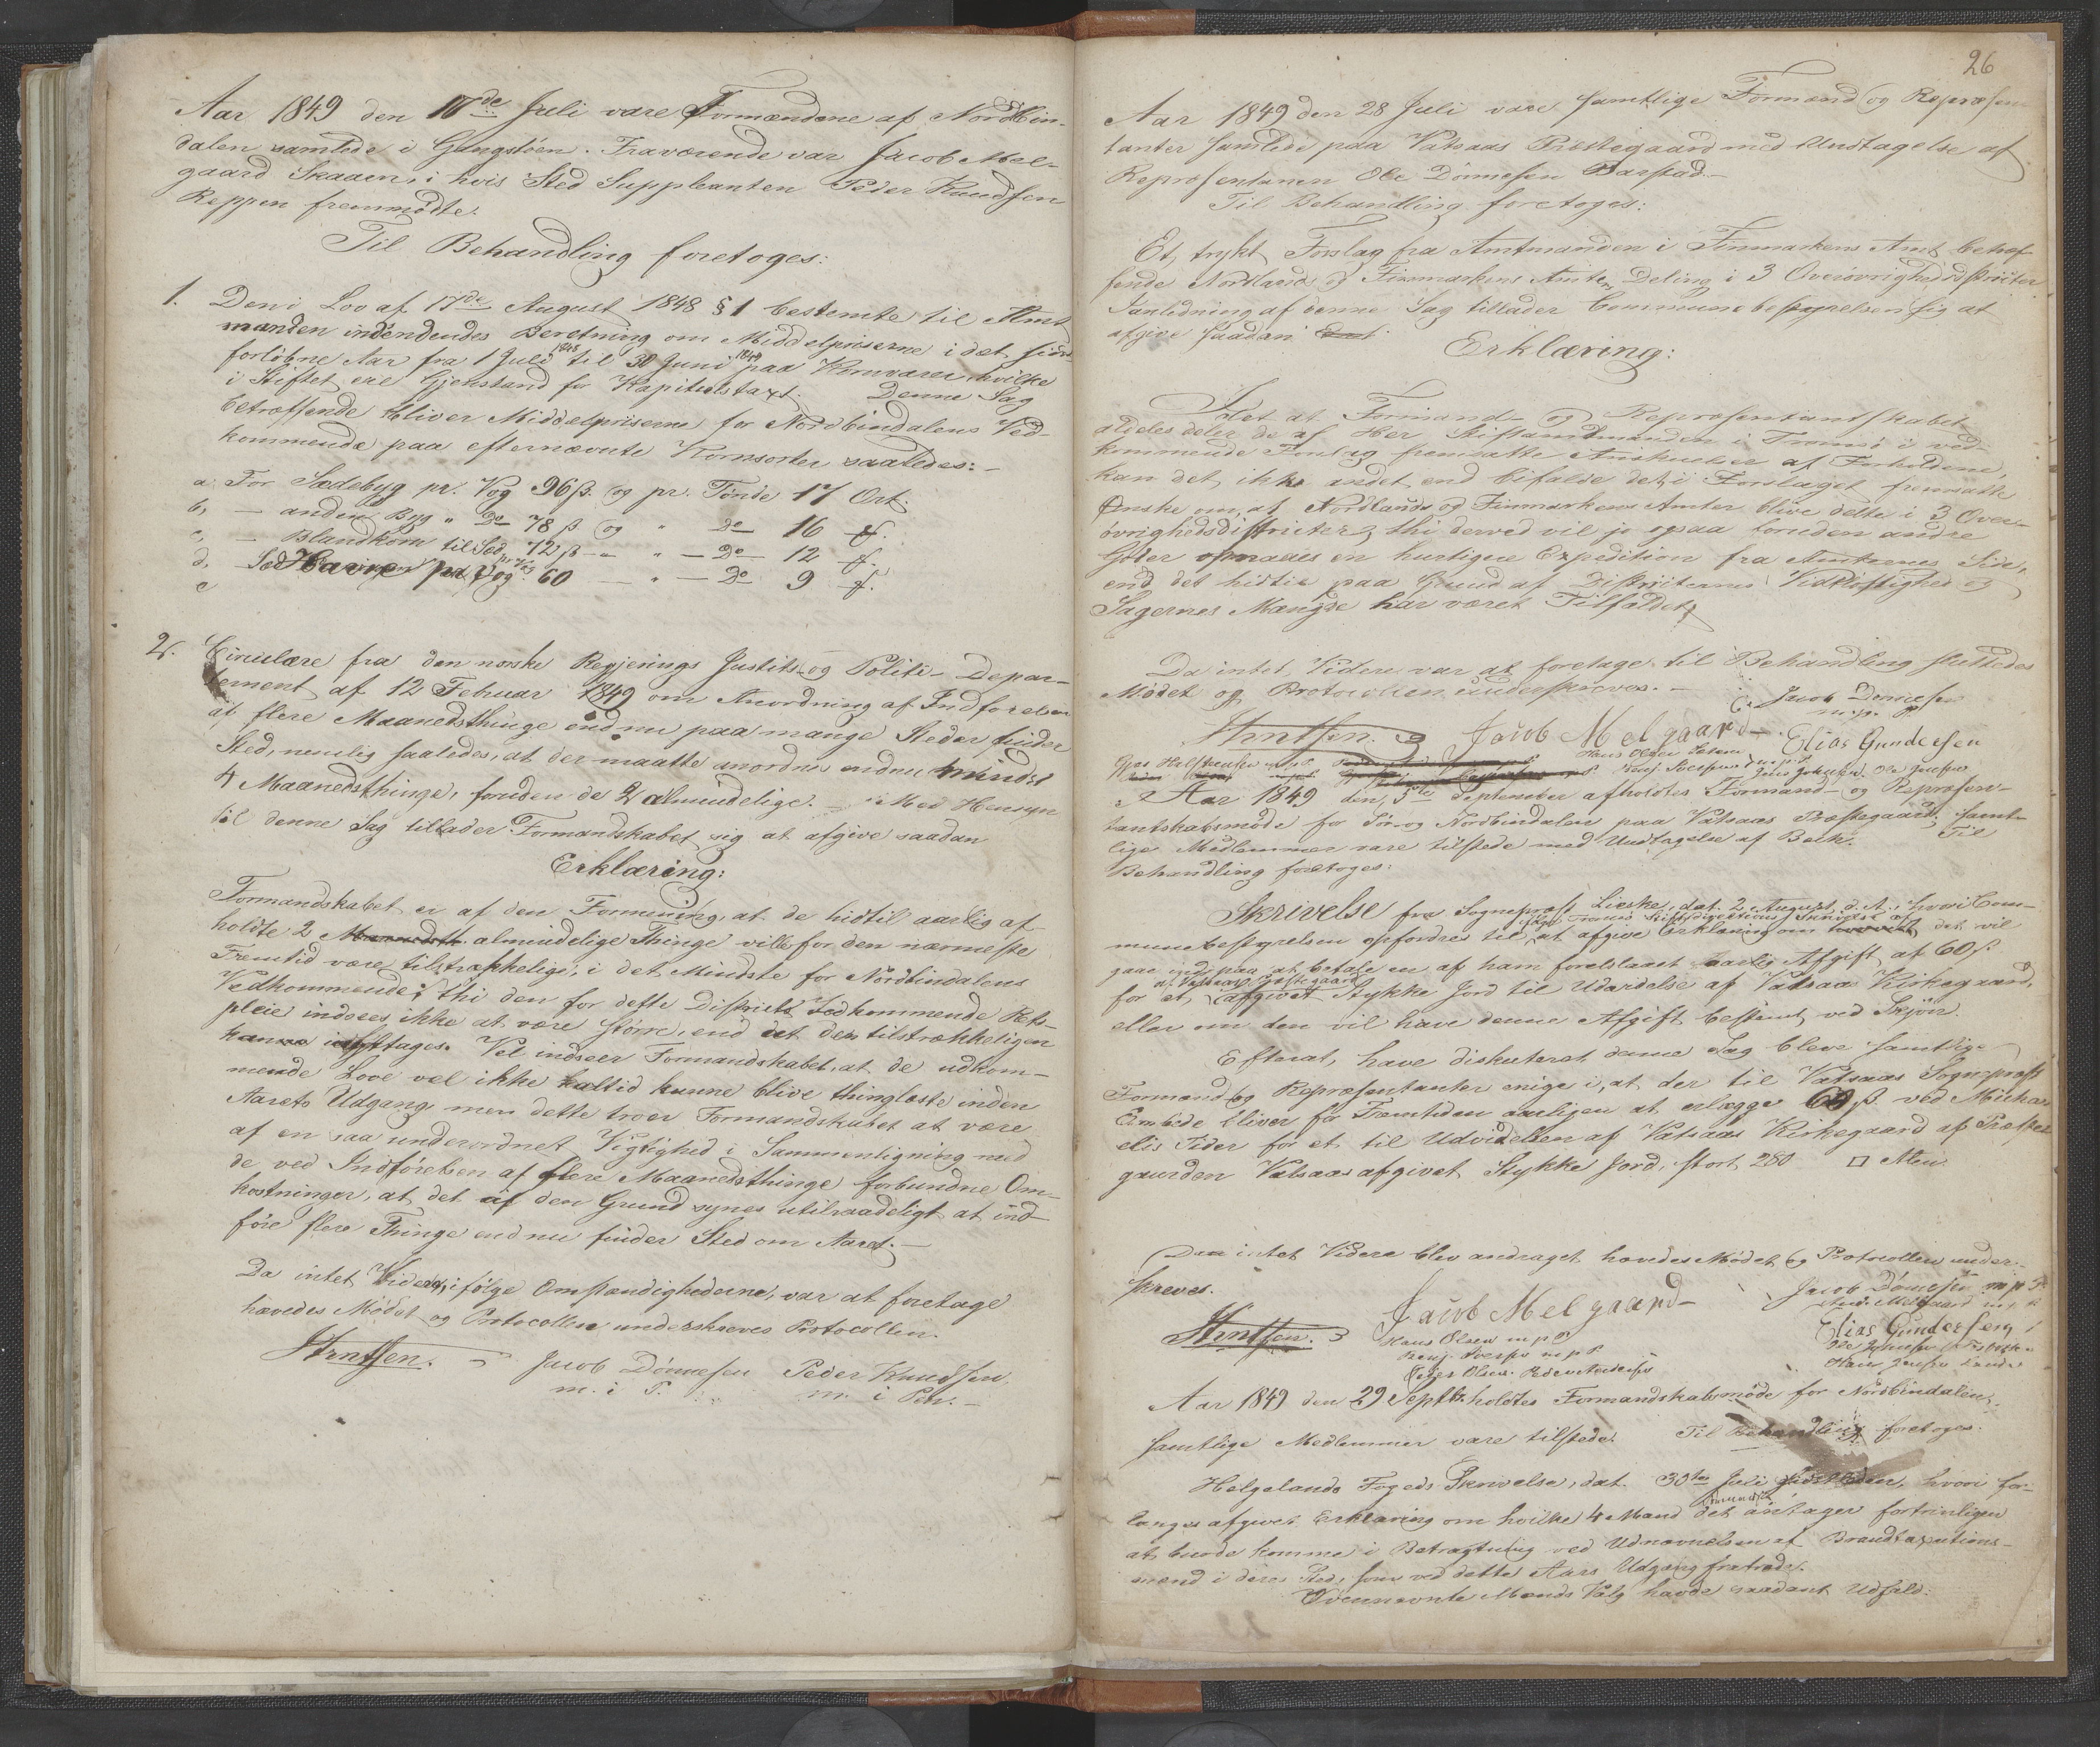 Aar 1849 den 17de Juli vare Formændene af Nordbin-
dalen samlede i Gangstøen. Fraværende var Jacob Mel-
gaard Skaaen, i hvis Sted Suppleanten Peder Knudsen
Reppen fremmødte.
Til Behandling foretoges:
1. Den i Lov af 17de August 1848 § 1 bestemte til Amt-
manden indsendendes Beretning om Middelpriserne i det sidst
forløbne Aar fra 1 Juli 1848 til 30 Juni 1849 paa Kornvarer, hvilke
i Stiftet ere Gjenstand for Kapitelstaxt. Denne Sag
betræffende bliver Middelpriserne for Nordbindalens Ved-
kommende paa efternævnte Kornsorter saaledes:-
a For Sædebyg pr. Vog 96 β. og pr. Tønde 17 Ort.
b, - anden Byg " Do 78 β og " do 16 f.
c, - Blandkorn til Sæd 72 β - " - Do 12 f.
d, Sæd Havre pr Vog 60 - " - Do 9 f.
e
2. Circulære fra den norske Regjerings Justits- og Politi- Depar-
tement af 12 Februar 1849 om Anordning af Indførelsen
af flere Maanedsthinge end nu paa mange Steder finder
Sted, nemlig saaledes, at der maatte anordnes endnu mindst
4 Maanedsthinge, foruden de 2 almindelige. - Med Hensyn
til denne Sag tillader Formandskabet sig at afgive saadan
Erklæring:
Formandskabet er af den Formening, at de hidtil aarlig af-
holdte 2 almindelige Thinge ville for den nærmeste
Fremtid være tilstrækkelige, i det Mindste for Nordbindalens
Vedkommende; thi den for dette Distrikts Vedkommende Rets-
pleie indsees ikke at være større, end at den tilstrækkeligen
kan iagttages. Vel indseer Formandskabet, at de udkom-
mende Love vel ikke altid kunne blive thinglæste inden
Aarets Udgang, men dette troer Formandskabet at være
af en saa underordnet Vigtighed i Sammenligning med
de ved Indførelsen af flere Maanedsthinge forbundne Om-
kostninger, at det af den Grund synes utilraadeligt at ind-
føre flere Thinge end nu finder Sted om Aaret.-
Da intet Videre, ifølge Omstændighederne, var at foretage
hævedes Mødet og Protocollen underskreves Protocollen.
Arntsen. Jacob Dønnesen Peder Knudsen
m. i P. m. i Pen.-
26
Aar 1849 den 28 Juli vare samtlige Formænd og Repræsen-
tanter samlede paa Vatsaas Præstegaard med Undtagelse af
Repræsentanen Ole Dønnesen Barstad.-
Til Behandling foretoges:
Et, trykt, Forslag fra Amtmanden i Finmarkens Amt betræf-
fende Nordlands og Finmarkens Amters Deling i 3 Overøvrighedsdistrikter
I anledning af denne Sag tillader Communebestyrelsen sig at
afgive saadan
Erklæring:
Idet at Formand- og Repræsentantskabet
aldeles deler de af Herr Stiftamtmanden i Tromsø i ved-
kommende Forslag fremsatte Anskuelser af Forholdene,
kan det ikke andet end bifalde det i Forslaget fremsatte
Ønske om, at Nordlands og Finmarkens Amter blive delte i 3 Over-
øvrighedsdistrikter; thi derved vil jo ogsaa foruden andre
Goder opnaaes en hurtigere Expedition fra Amternes Side,
end det hidtil paa Grund af Distrikternes Vidtløftighed og
Sagernes Mængde har været Tilfældet.
Da intet Videre var at foretage til Behandling sluttedes
Mødet og Protocollen underskreves. -
Jacob Dønnesen
m. p. P.
Arntsen. Jacob Melgaard-. Elias Gundersen
Hans Olsen
Aar 1849 den 5te September afholdtes Formand- og Repræsen-
tantskabsmøde for Sør- og Nordbindalen paa Vatsaas Præstegaard; Samt-
lige Medlemmer vare tilstede med Undtagelse af Beck. Til
Behandling foretoges:
Skrivelse fra Sognepræst dat. 2 August d. A., hvori Com-
munebestyrelsen opfordres til, at afgive Erklæring om det vil
ifølge Tromsø Stiftsdirections Skrivelse af
gaae ind paa at betale en af ham foreslaaet aarlig Afgift af 60 β.
af Vatsaas Præstegaard
for et, afgivet Stykke Jord til Udvidelse af Vatsaas Kirkegaard,
eller om den vil have denne Afgift bestemt ved Skjøn.
Efterat, have diskuteret denne Sag bleve samtlige
Formænd og Repræsentanter enige i, at der til Vatsaas Sognepræst
Embede bliver for Fremtiden aarligen at erlægge 60 β ved Micha-
elis Tider for et til Udvidelsen af Vatsaas Kirkegaard af Præste-
gaarden Vatsaas afgivet Stykke Jord, stort 280 □ Alen.
Daa intet Videre blev andraget hævedes Mødet og Protocollen under-
skreves.
Jacob Melgaard- Jacob Dønnesen m p P
Arntsen. Hans Olsen m p P Elias Gundersen
Peder Olsen
Aar 1849 den 29 Septbr. holdtes Formandskabsmøde for Nordbindalen.
samtlige Medlemmer vare tilstede. Til Behandling foretoges:
Helgelands Fogeds Skrivelse, dat. 30te Juli sidstleden, hvori for-
langes afgivet Erklæring om hvilke 4 Mænd det antager fortrinligen
Formandsk.
at burde komme i Betragtning ved Udnævnelsen af Brandtaxations-
mænd i deres Sted, som ved dette Aars Udgang fratræde.
Ovennævnte Mænds Valg havde saadant Udfald: